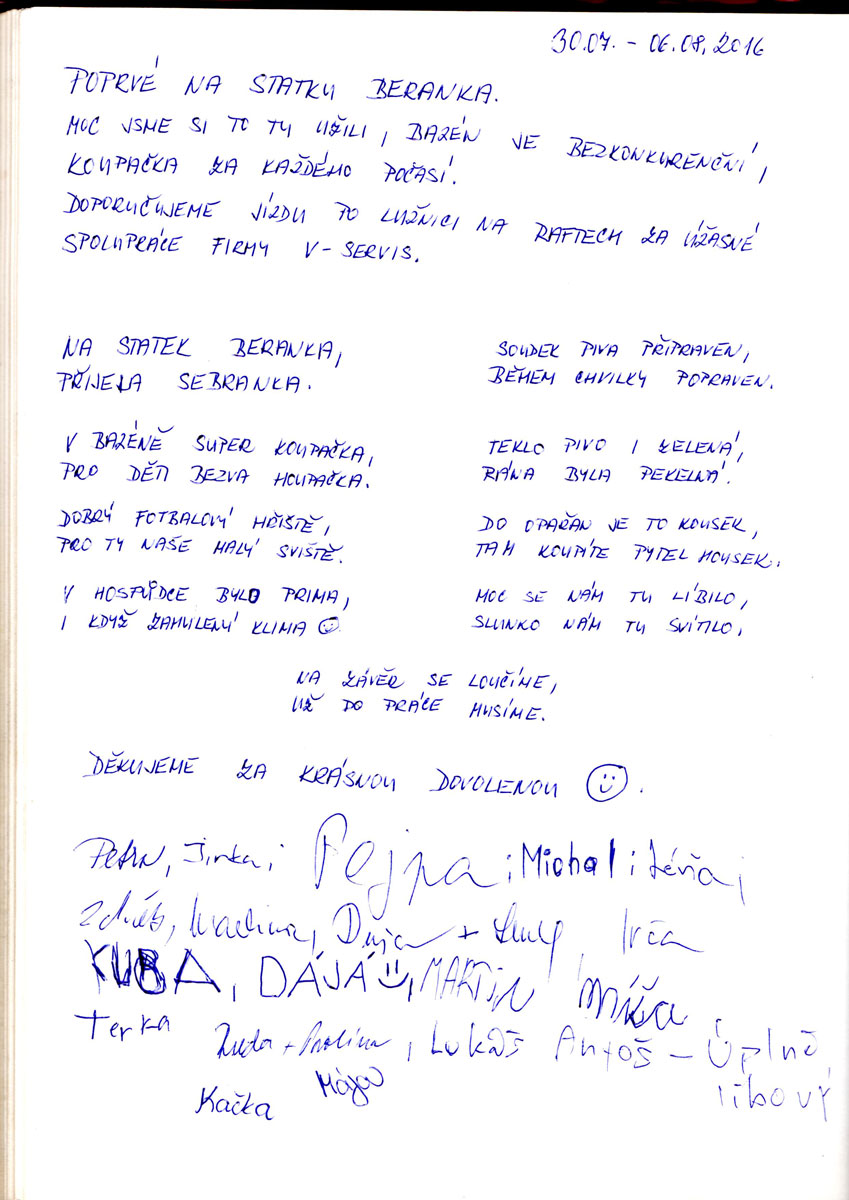 30.07. - 06.08.2016
POPRVÉ NA STATKU BERANKA.
MOC JSME SI TO TU UŽILI, BAZÉN JE BEZKONKURENČNÍ,
KOUPAČKA ZA KAŽDÉHO POČASÍ.
DOPORUČUJEME JÍZDU PO LUŽNICI NA RAFTECH ZA ÚŽASNÉ
SPOLUPRÁCE FIRMY V-SERVIS.
NA STATEK BERANKA,
PŘIJELA SEBRANKA.
V BAZÉNĚ SUPER KOUPAČKA,
PRO DĚTI BEZVA HOUPAČKA.
DOBRÝ FOTBALOVÝ HŘIŠTĚ,
PRO TY NAŠE MALÝ SVIŠTĚ.
V HOSPŮDCE BYLO PRIMA,
I KDYŽ ZAHULENÝ KLIMA ☺.
SOUDEK PIVA PŘIPRAVEN,
BĚHEM CHVILKY POPRAVEN.
TEKLO PIVO I ZELENÁ,
RÁNA BYLA PEKELNÁ.
DO OPAŘAN JE TO KOUSEK,
TAM KOUPÍTE PYTEL HOUSEK.
MOC SE NÁM TU LÍBILO,
SLUNKO NÁM TU SVÍTILO,
NA ZÁVĚR SE LOUČÍME,
UŽ DO PRÁCE MUSÍME.
DĚKUJEME ZA KRÁSNOU DOVOLENOU ☺.
Jirka, Pejpa, Michal,
+ Irča
KUBA, DÁJÁ ☺, MARTIN Míša
Terka
+ , Lukáš Antoš - Úplně
libový
Kačka